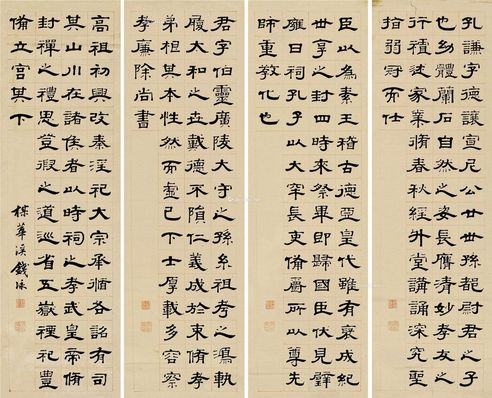 孔謙字德讓宣尼公廿世孫都尉君之子
也幼體蘭石自然之姿長膺清妙孝友之
行禘述家業脩春秋經升堂講誦深究聖
指弱冠而仕
臣以為素王稽古德亞皇代雖有襃成紀
世享之封四時來祭畢即歸國臣伏見辟
雍日祠孔子以大宰長吏備爵所以尊先
師重教化也
君字伯靈廣陵大守之孫糸祖考之鴻軌
履大和之在載德不隕仁義成於束脩孝
弟根其本性然而虛己下士厚載多容察
孝廉除尚書
高祖初興改秦淫祀大宗承循各詔有司
其山川在諸侯者以時祠之孝武皇帝脩
封禪之禮思登假之道巡省五嶽禋祀豐
備立宮其下
梅華溪錢泳